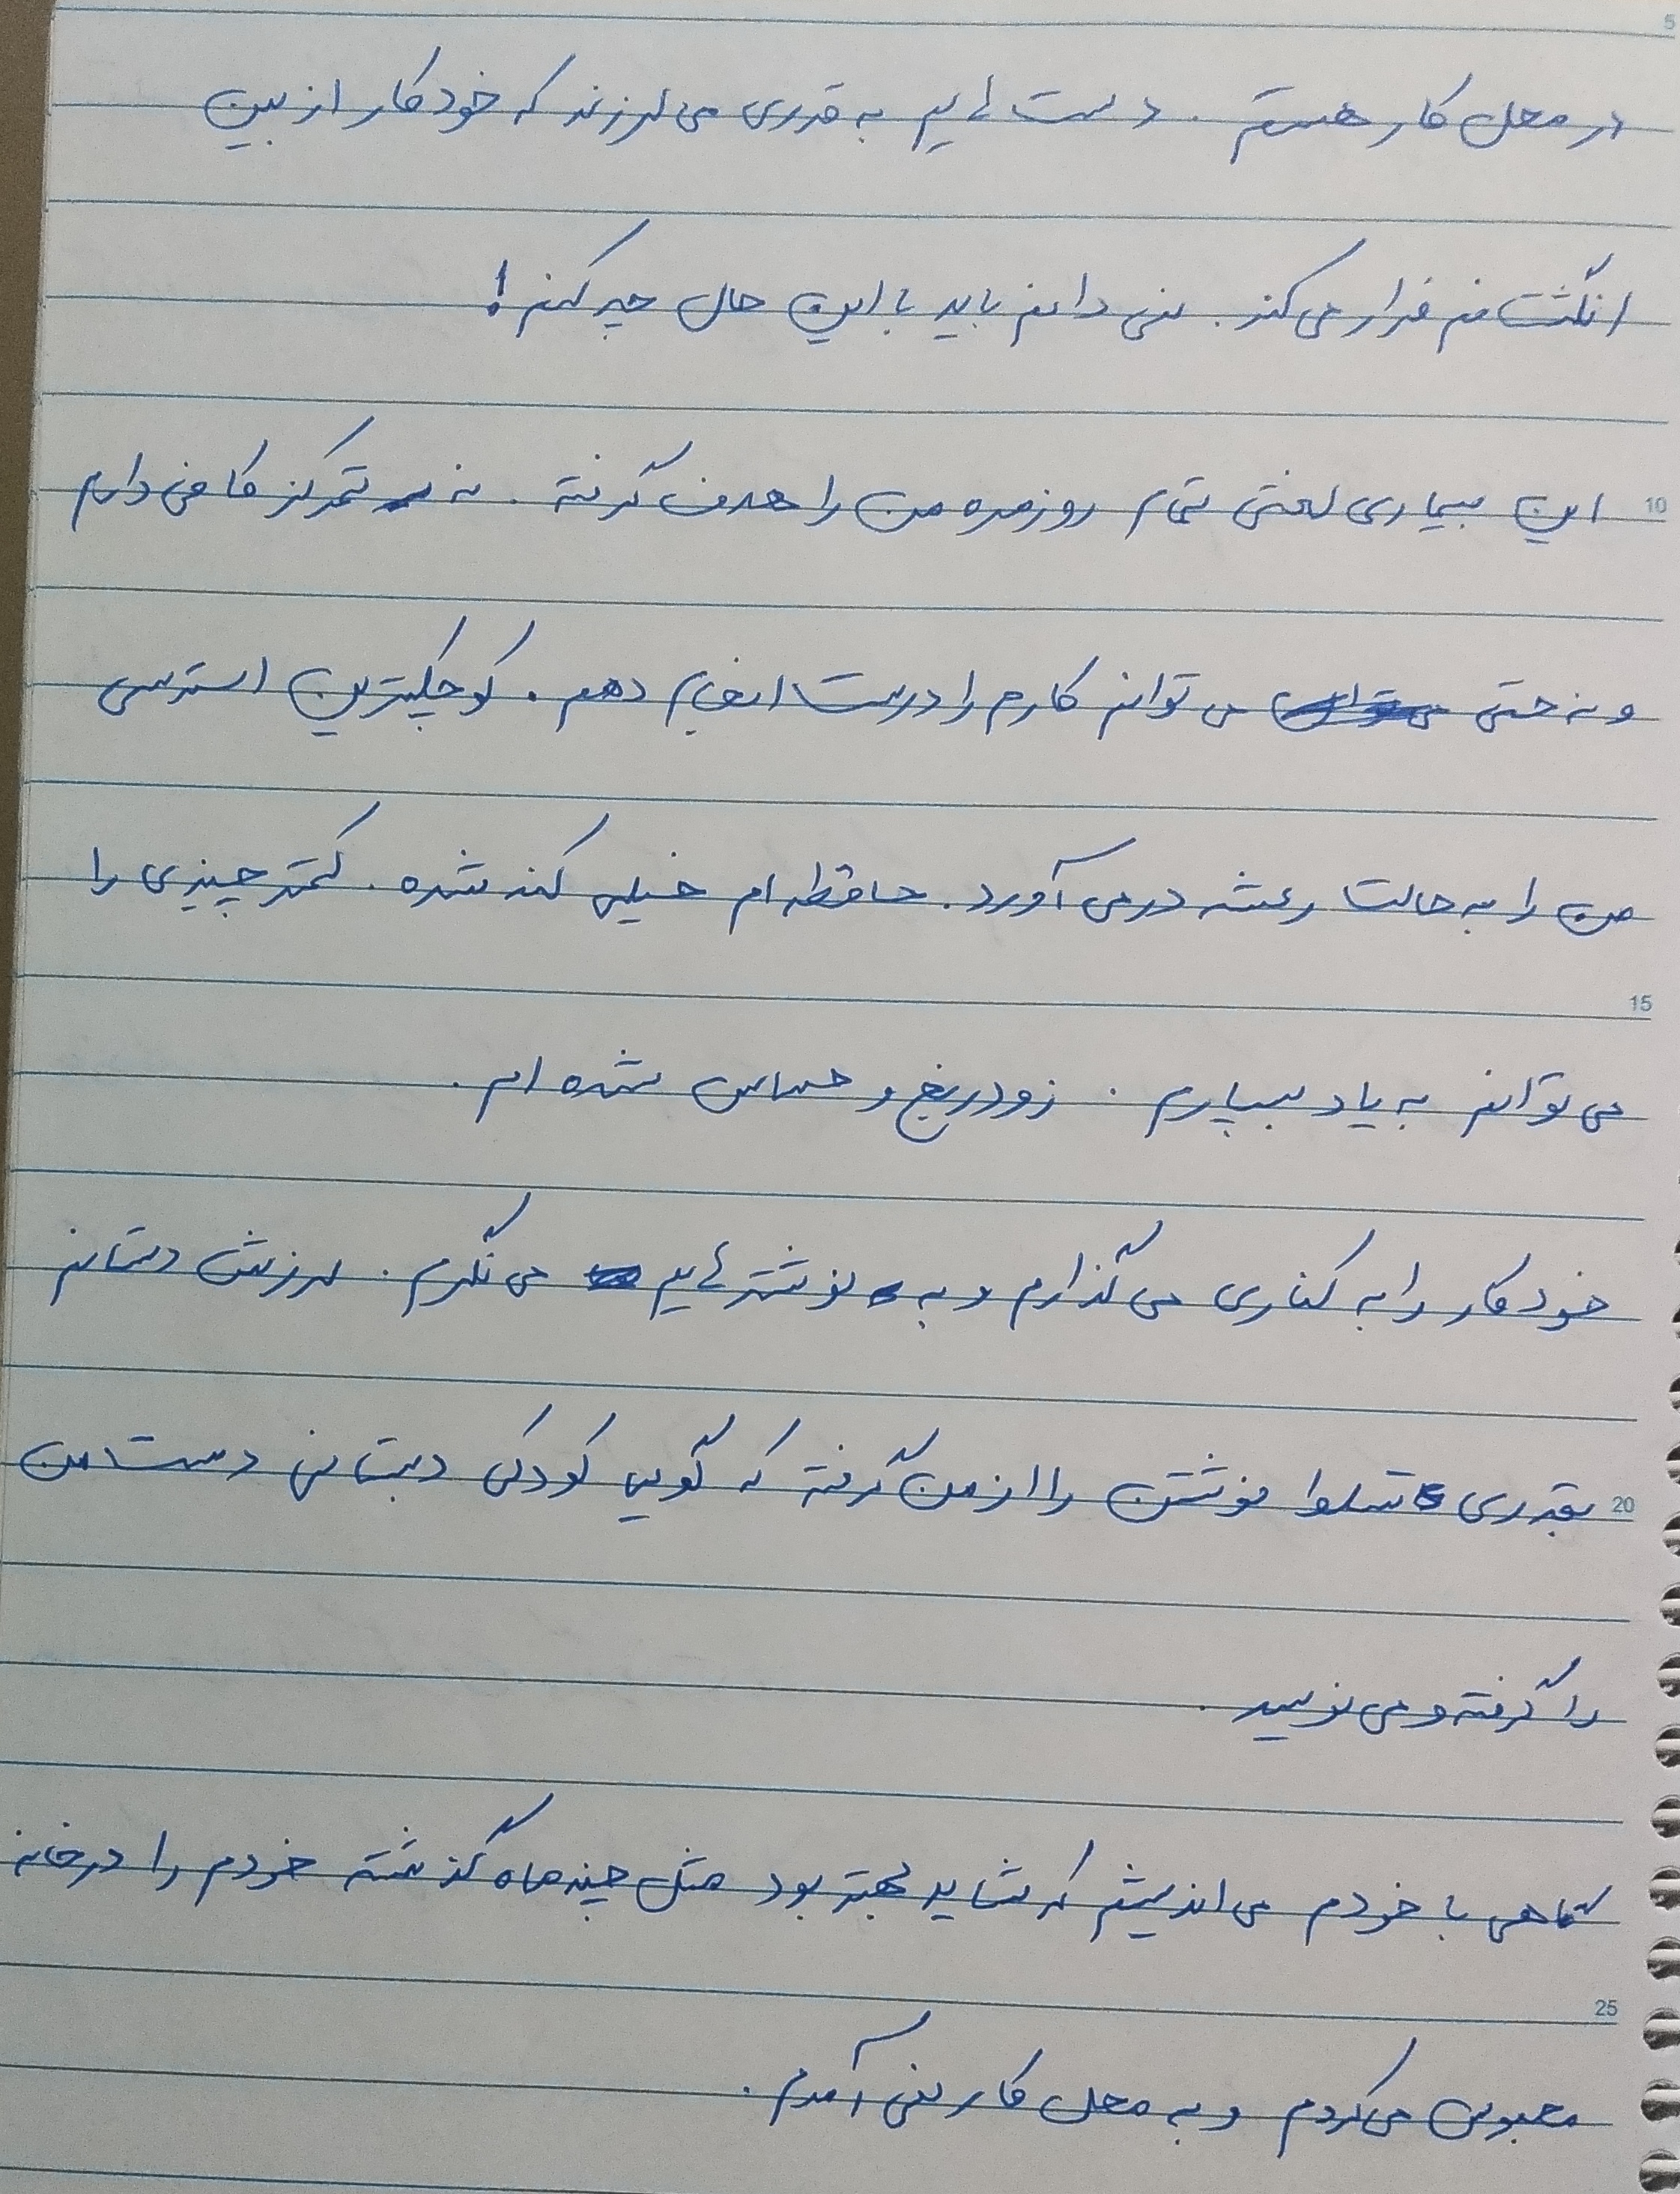 5
در محل کار هستم. دست هایم به قدری می لرزند که خودکار از بین
انگشتانم فرار می کند. نمی دانم باید با این حال چه کنم!
10 این بیماری لعنتی تمام روزمره من را هدف گرفته. نه تمرکز کافی دارم
و نه حتی می توانم کارم را درست انجام دهم. کوچکترین استرسی
من را به حالت رعشه در می آورد. حافظه ام خیلی کند شده. کمتر چیزی را
15
می توانم به یاد بسپارم. زودرنج و حساس شده ام.
خودکار را به کناری می گذارم و به نوشته هایم می نگرم. لرزش دستانم
20 بقدری تسلط نوشتن را از من گرفته که گویی کودکی دبستانی دست من
را گرفته و می نویسد.
گاهی با خودم می اندیشم که شاید بهتر بود مثل چند ماه گذشته خودم را در خانه
25
محبوس می کردم و به محل کار نمی آمدم.